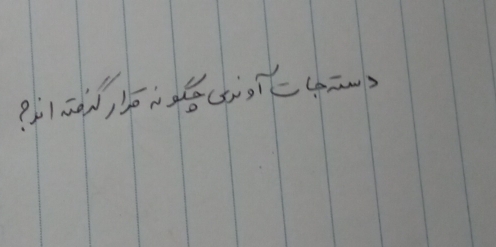 دسته جات آوندی چگونه قرار گرفته اند؟